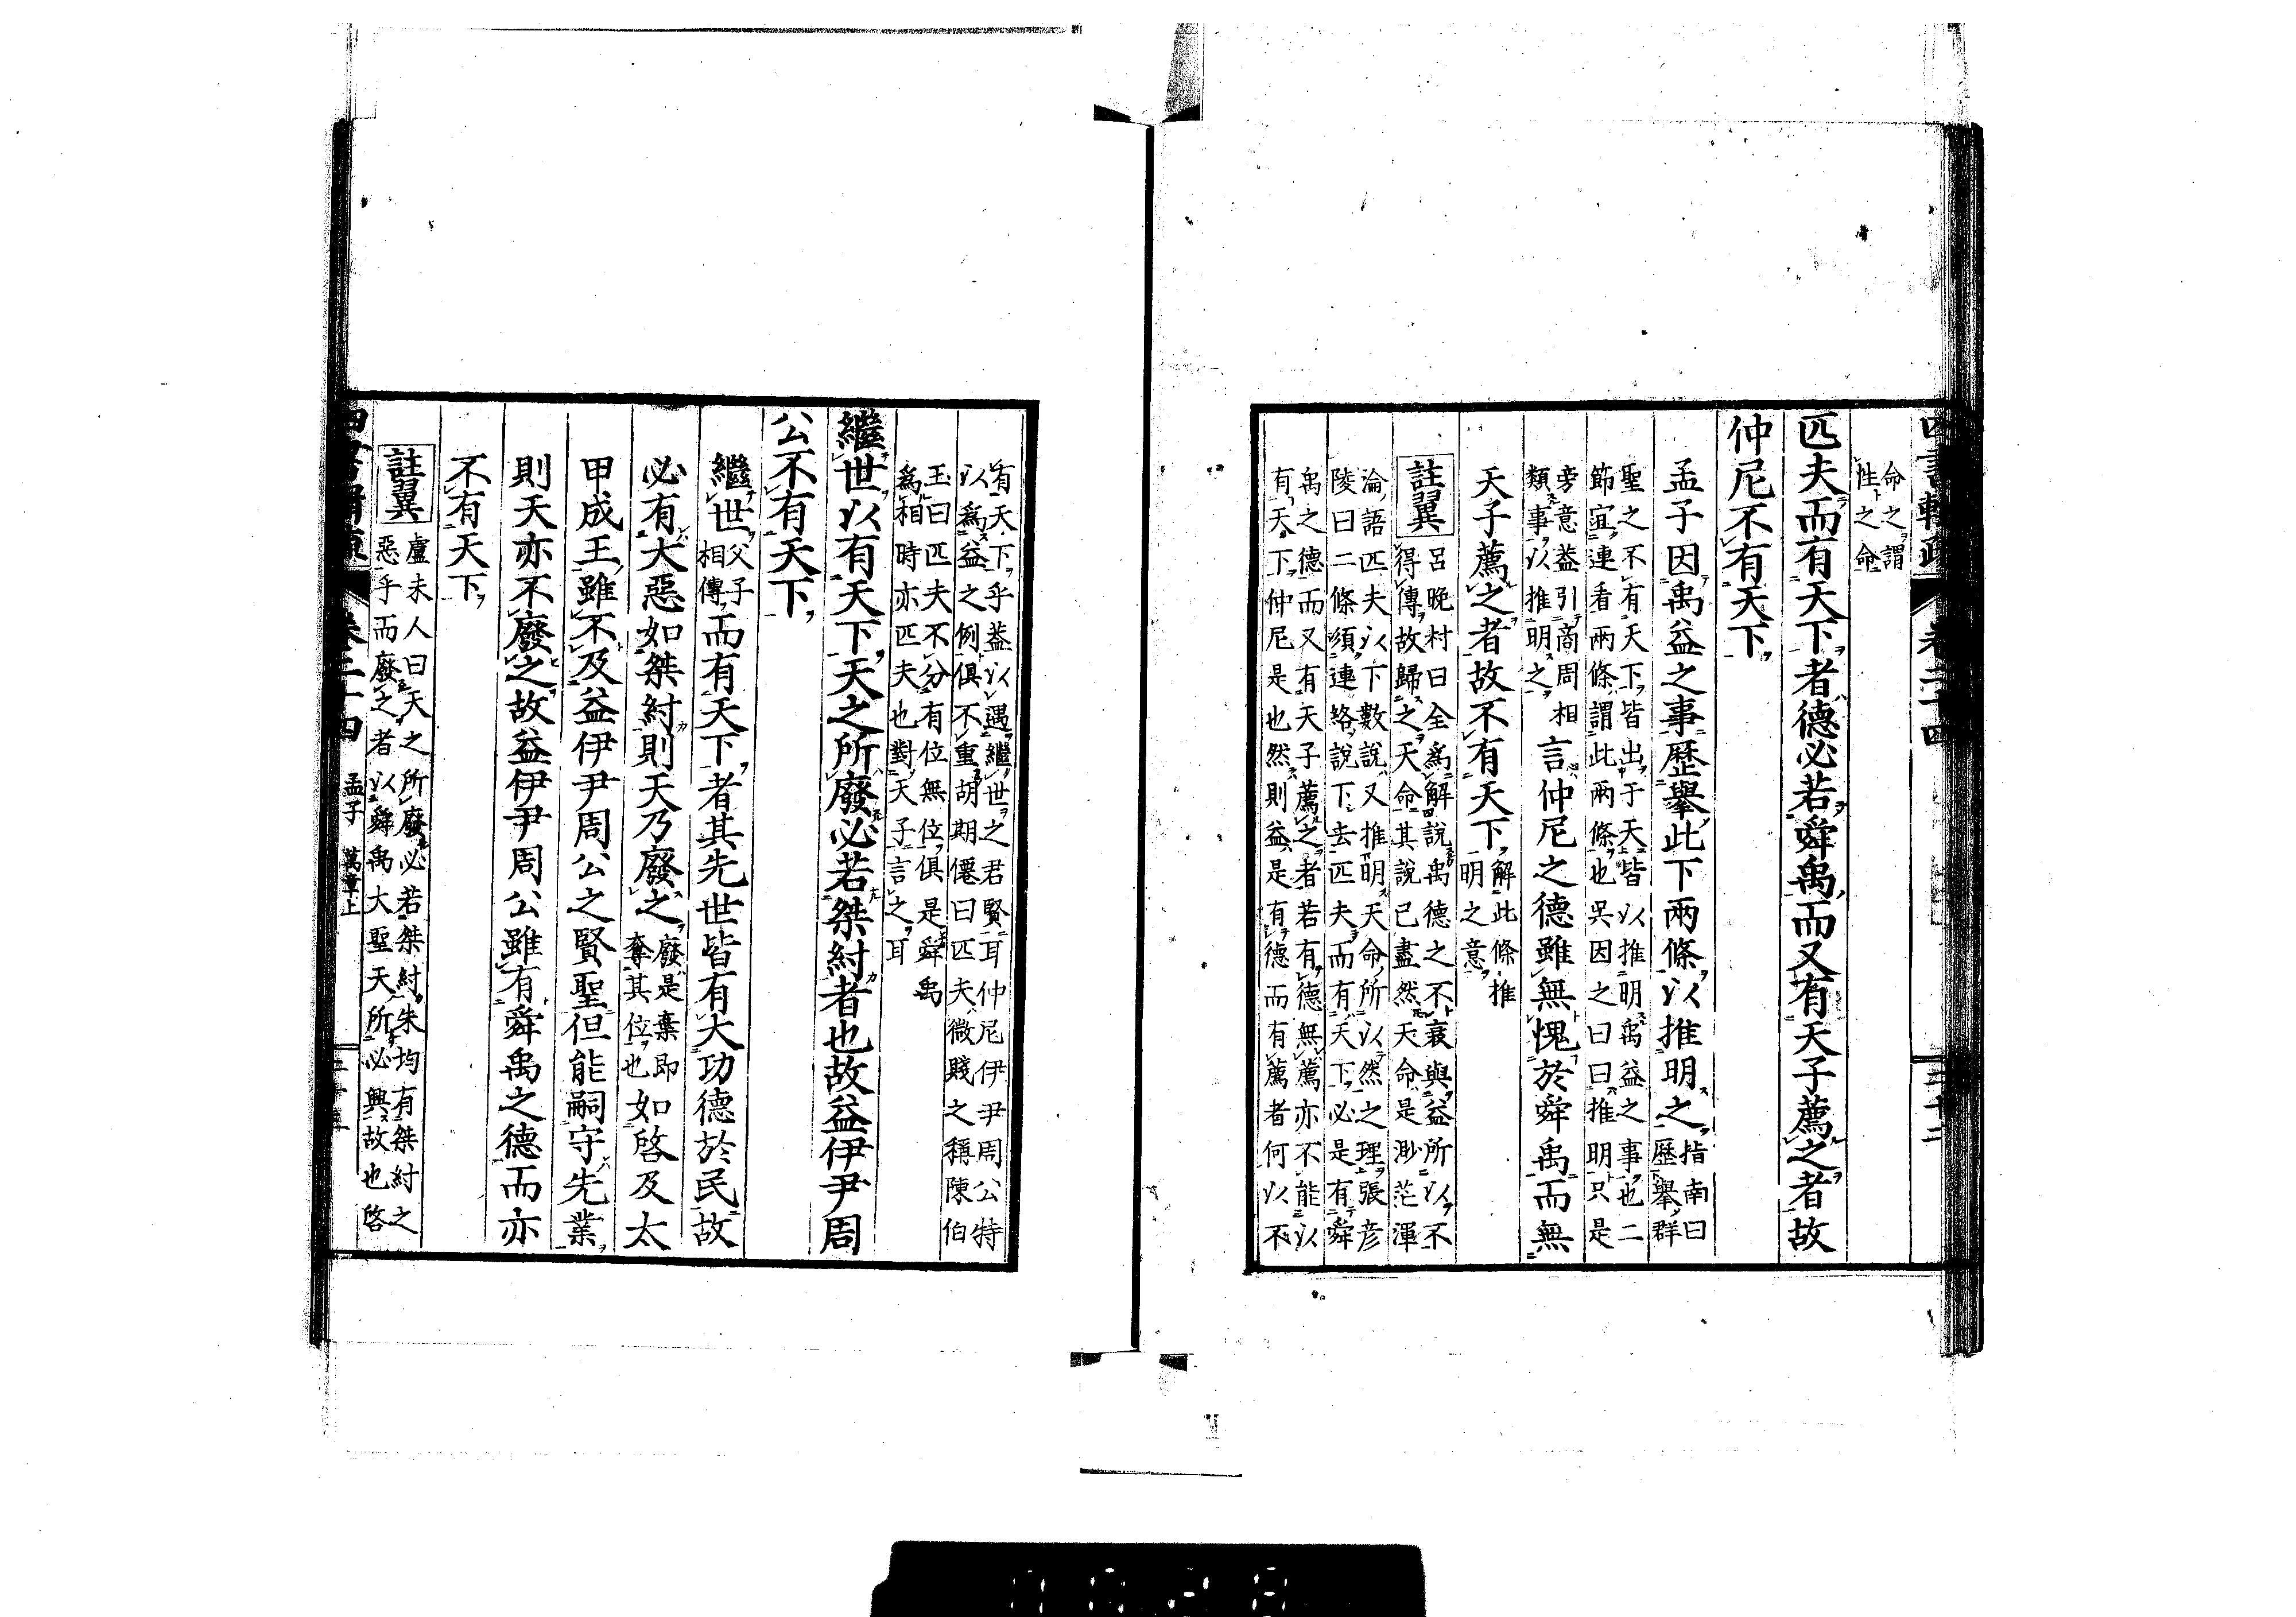 四書輯疏 卷二十四 二十二
命之謂
性之命
匹夫而有天下者德必若舜禹而又有天子薦之者故
仲尼不有天下
孟子因禹益之事歷舉此下兩條以推明之
指南曰
歷舉群
聖之不有天下皆出于天皆以推明禹益之事也二
節宜連看兩條謂此兩條也吳因之曰曰推明只是
旁意葢引商周相
類事以推明之
言仲尼之德雖無愧於舜禹而無
天子薦之者故不有天下
解此條推
明之意
註翼
呂晚村曰全爲解說禹德之不衰與益所以不
得傳故歸之天命其說已盡然天命是渺茫渾
淪語匹夫以下數說又推明天命所以然之理張彦
陵曰二條須連絡說下去匹夫而有天下必是有舜
禹之德而又有天子薦之者若有德無薦亦不能以
有天下仲尼是也然則益是有德而有薦者何以不
有天下乎葢以遇繼世之君賢耳仲尼伊尹周公特
以爲益之例俱不重胡期僊曰匹夫微賤之稱陳伯
玉曰匹夫不分有位無位俱是舜禹
爲相時亦匹夫也對天子言之耳
繼世以有天下天之所廢必若桀紂者也故益伊尹周
公不有天下
繼世
父子
相傳
而有天下者其先世皆有大功德於民故
必有大惡如桀紂則天乃廢之
廢是棄即
奪其位也
如啓及太
甲成王雖不及益伊尹周公之賢聖但能嗣守先業
則天亦不廢之故益伊尹周公雖有舜禹之德而亦
不有天下
註翼
盧未人曰天之所廢必若桀紂朱均有桀紂之
惡乎而廢之者以舜禹大聖天所必興故也啓
卷二十四 孟子 萬章上